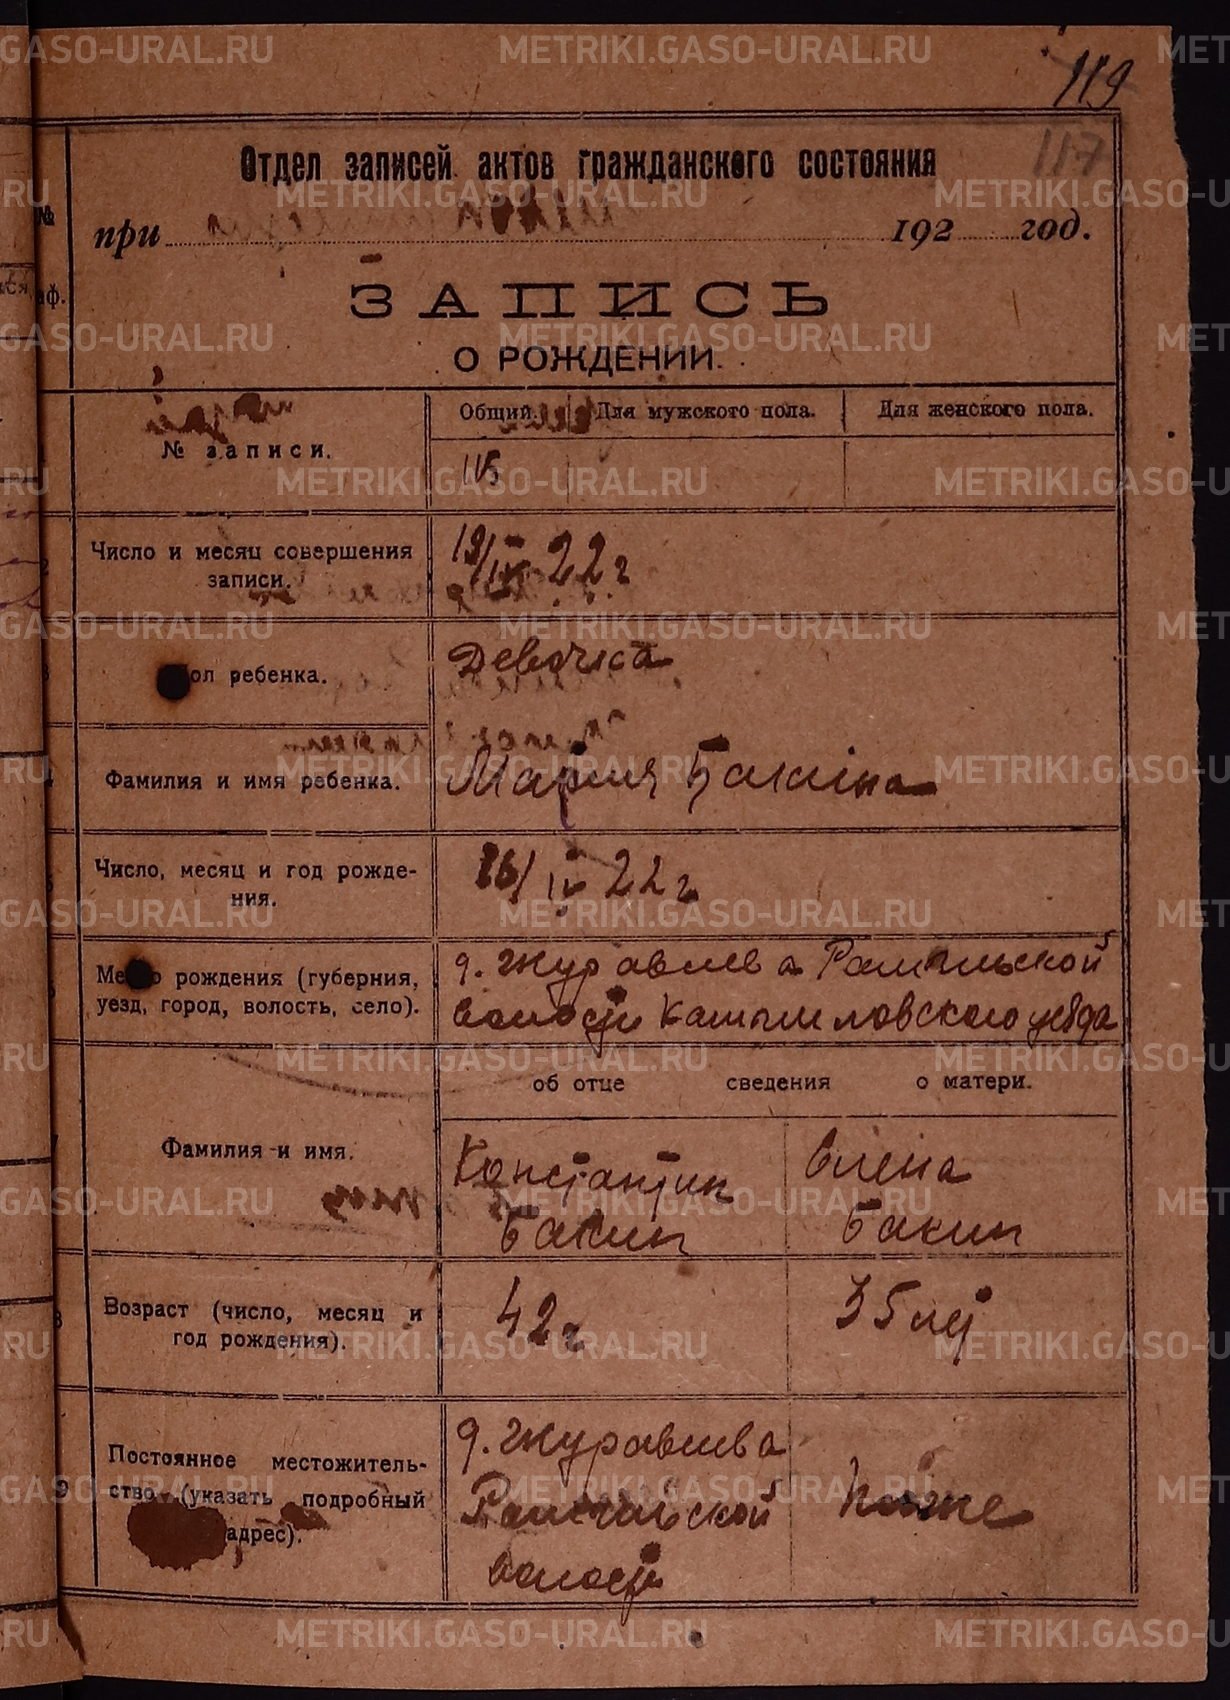 119
117
Отдел записей актов гражданского состояния
при 192 год.
ЗАПИСЬ
О РОЖДЕНИИ.
№ записи.
Общий. Для мужского пола. Для женского пола.
115
Число и месяц совершения
записи.
19/IV 22 г
ол ребенка.
Девочка
Фамилия и имя ребенка.
Мария Бакина
Число, месяц и год рожде-
ния.
16/IV 22 г
Ме о рождения (губерния,
уезд, город, волость, село).
д. Журавлева
волости Камышловского уезда
об отце сведения о матери.
Фамилия и имя.
Константин
Бакин
Елена
Бакин
Возраст (число, месяц и
год рождения).
42 г
35 лет
9
Постоянное местожитель-
ство (указать подробный
адрес).
д. Журавлева
волости
тоже
METRIKI.GASO-URAL.RU